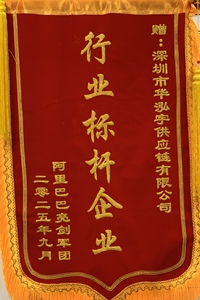 赠：深圳市华泓宇供应链有限公司
行业标杆企业
阿里巴巴亮剑军团
二零二五年九月